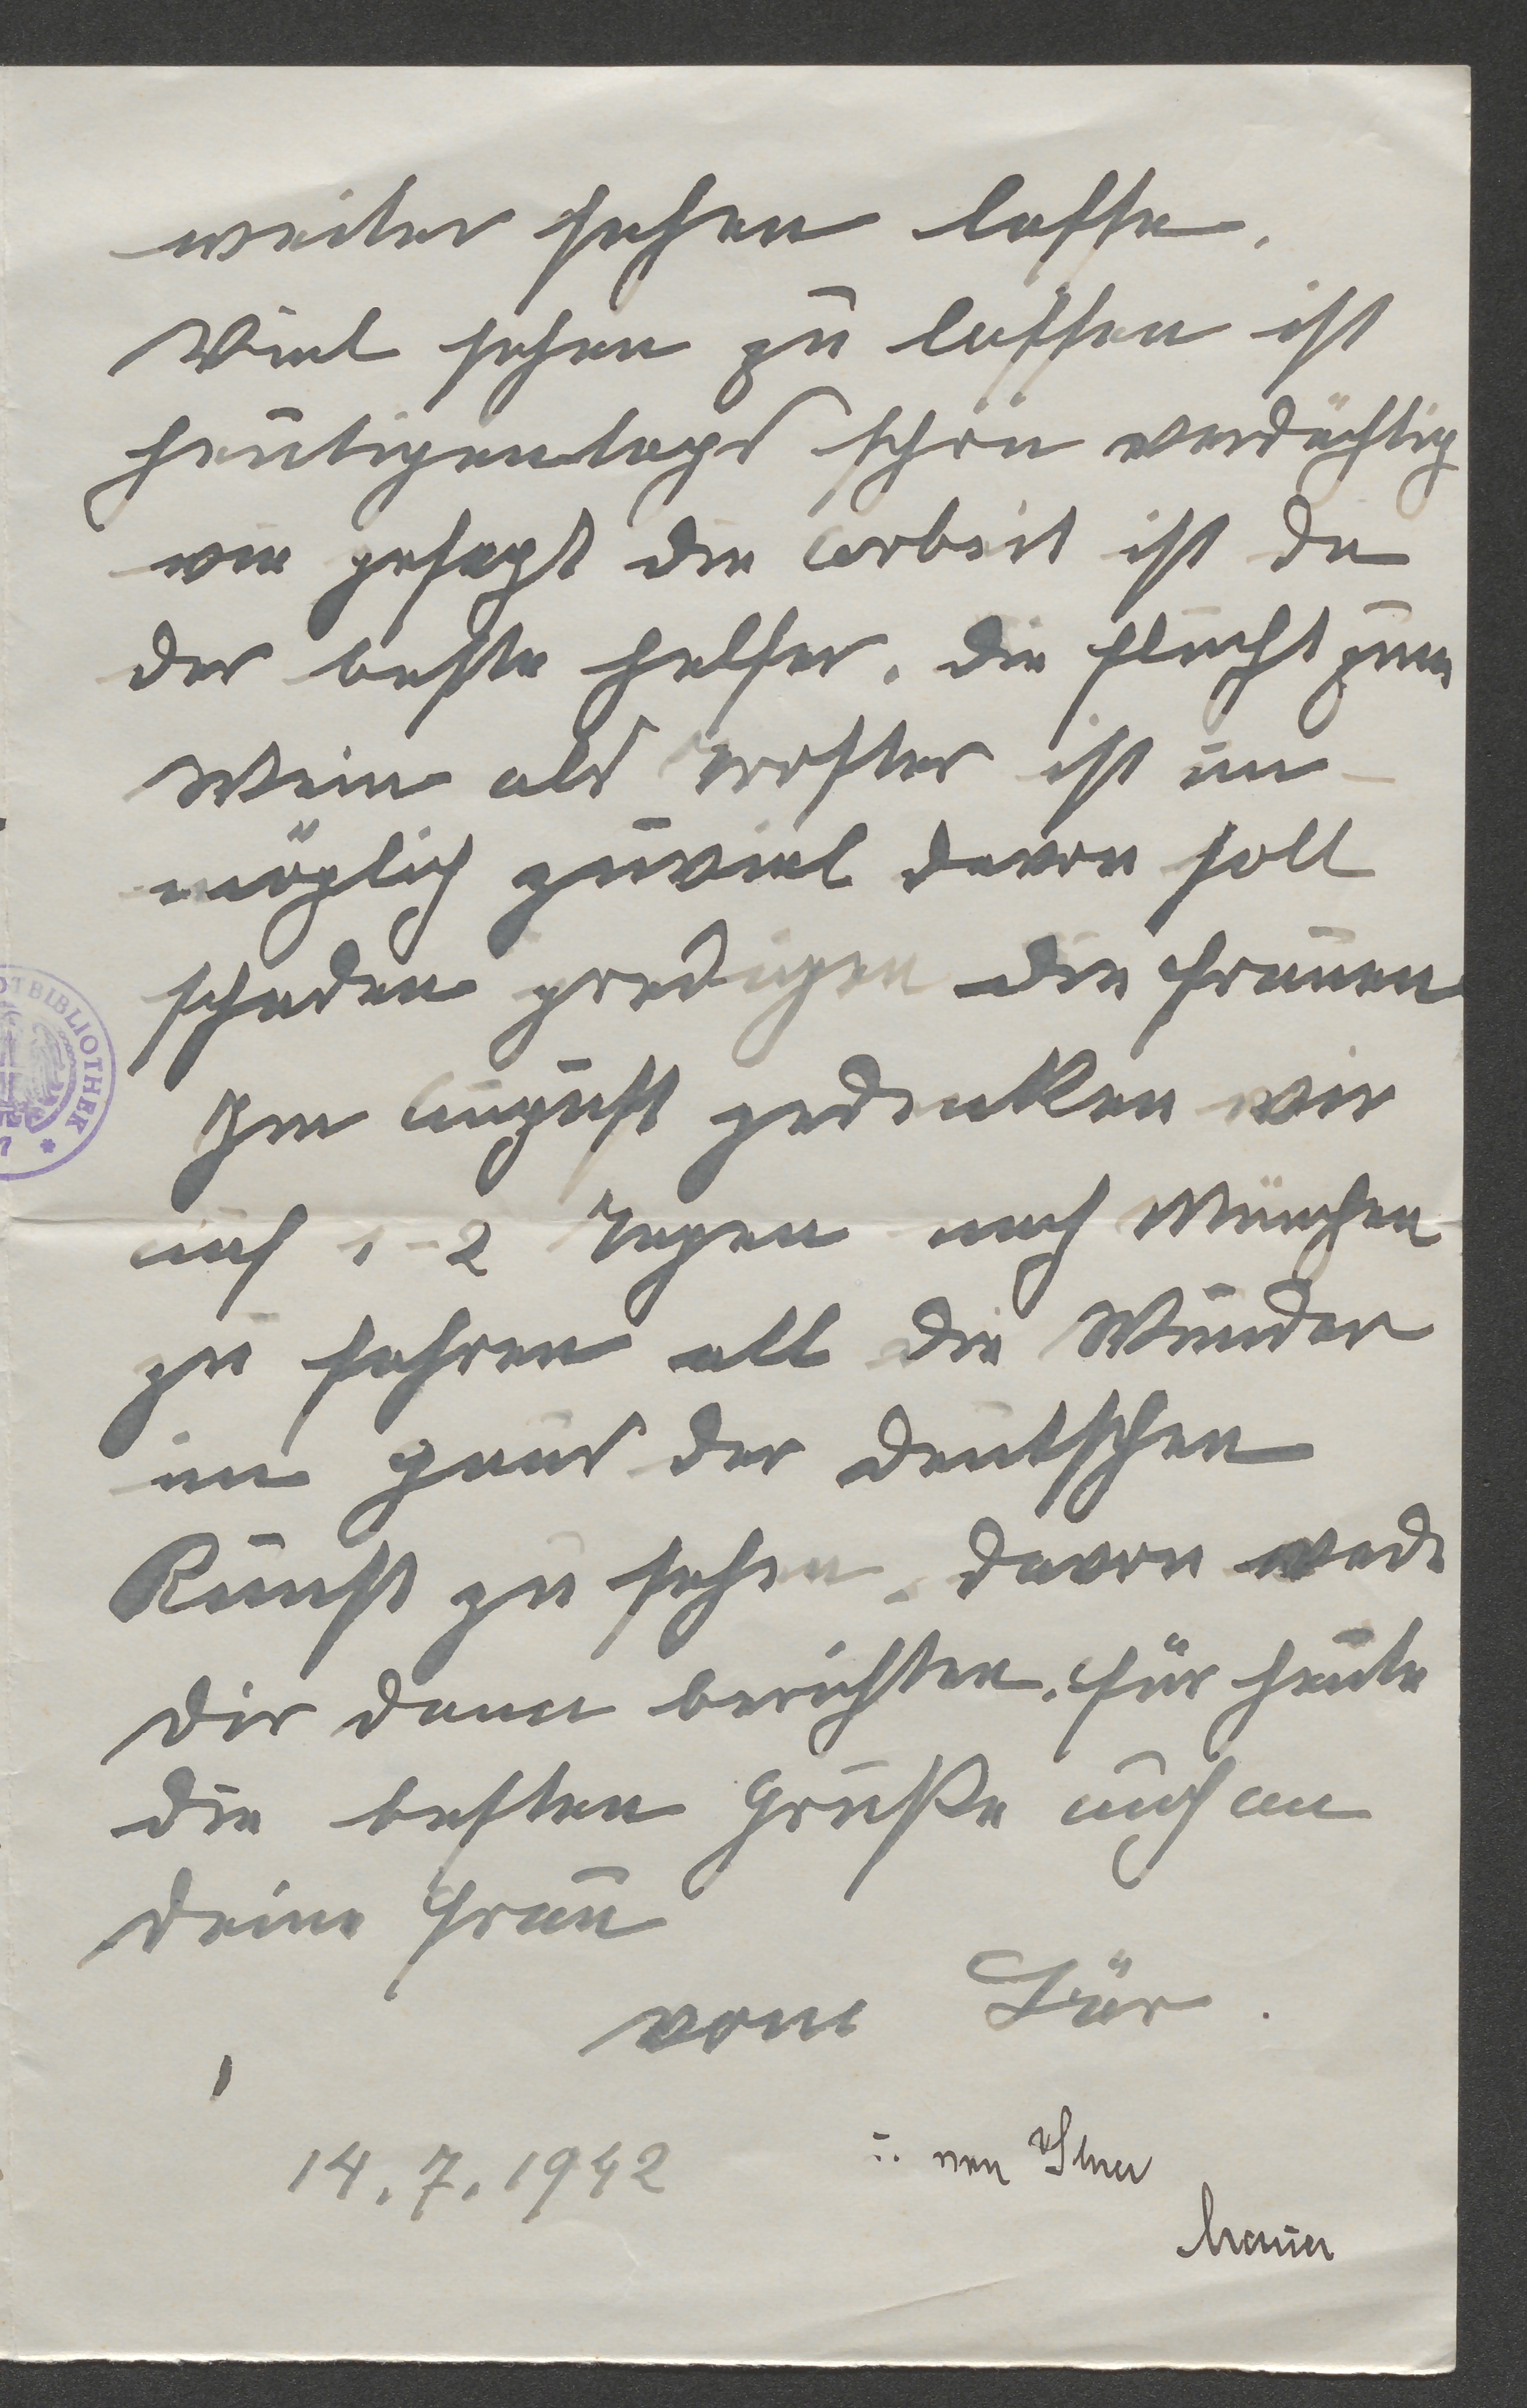 weiter sehen lasse.
Viel sehen zu lassen ist
heutigentags schon verdächtig
wie gesagt die arbeit ist da
der beste helfer. die flucht zum
Wein als Troster ist un-
möglich zuviel davon soll
schaden predigen die frauen
Im august gedenken wir
auf 1-2 Tagen nach München
zu fahren all die Wunder
im Haus der deutschen
Kunst zu sehen. davon werde
dir dann berichten. für heute
die besten Grüße auch an
deine frau
vom Bär.
14. 7. 1942
STADTBIBLIOTHEK